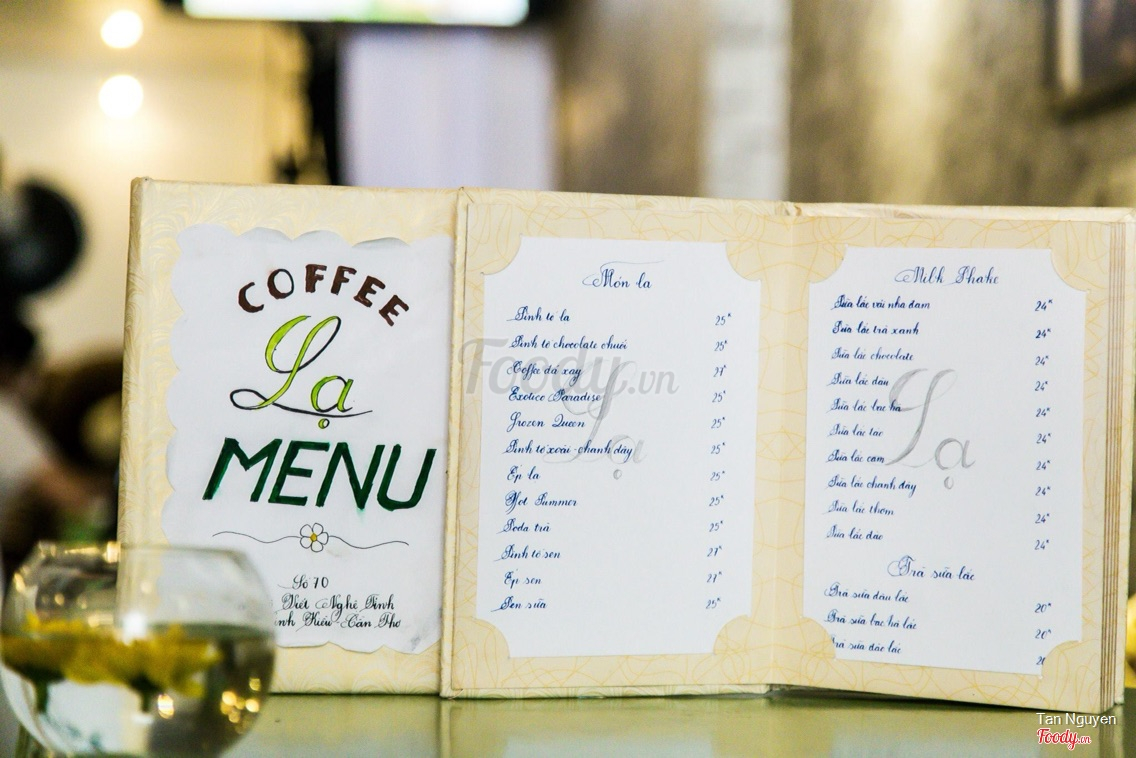 COFFEE
Lạ
MENU
Số 70
Viết Nghệ Tĩnh
Ninh Kiều - Cần Thơ
Món lạ
Sinh tố lạ 25ᴷ
Sinh tố chocolate chuối 25ᴷ
Coffee đá xay 27ᴷ
Exotice Paradise 25ᴷ
Grozen Queen 25ᴷ
Sinh tố xoài - chanh dây 25ᴷ
Ép lạ 25ᴷ
Hot Summer 25ᴷ
Soda trà 25ᴷ
Sinh tố sen 27ᴷ
Ép sen 27ᴷ
Sen sữa 25ᴷ
Milk Shake
Sữa lắc vải nha đam 24ᴷ
Sữa lắc trà xanh 24ᴷ
Sữa lắc chocolate 24ᴷ
Sữa lắc dâu 24ᴷ
Sữa lắc bạc hà 24ᴷ
Sữa lắc táo 24ᴷ
Sữa lắc cam 24ᴷ
Sữa lắc chanh dây 24ᴷ
Sữa lắc thơm 24ᴷ
Sữa lắc đào 24ᴷ
Trà sữa lắc
Trà sữa dâu lắc 20ᴷ
Trà sữa bạc hà lắc 20ᴷ
Trà sữa đào lắc
Lạ
Lạ
Foody.vn
Tan Nguyen
Foody.vn